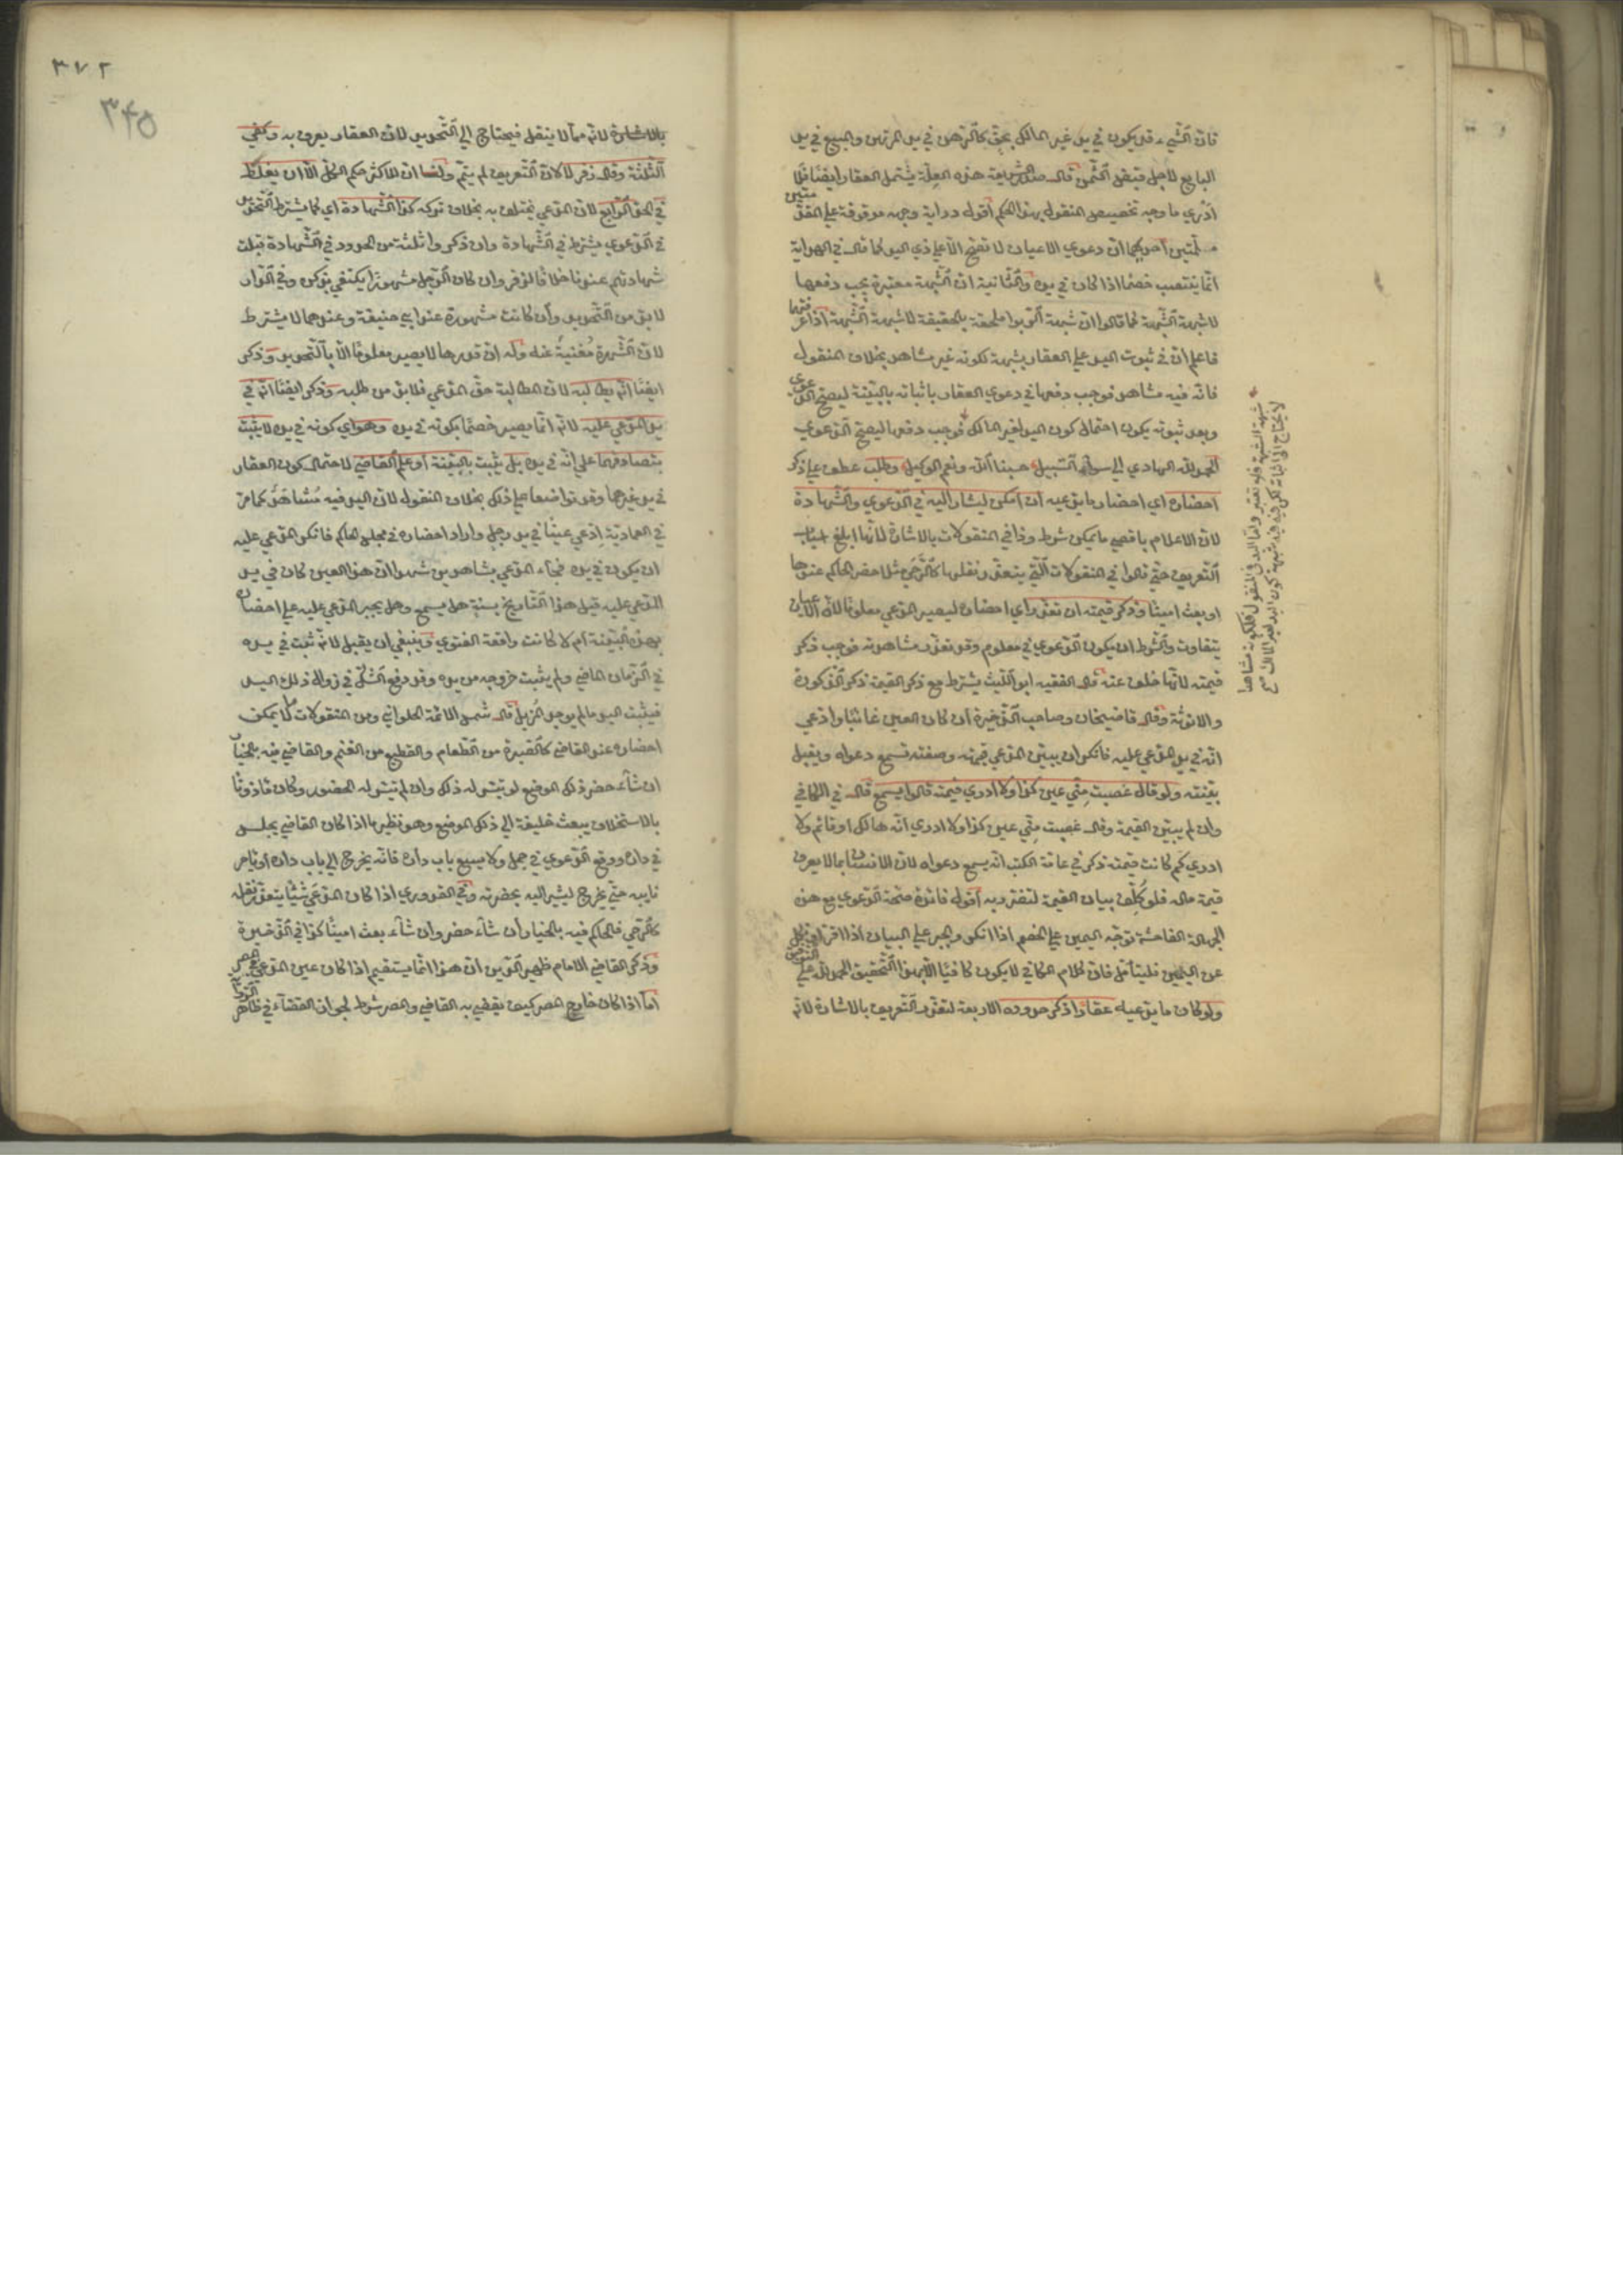 فان الشيء قد يكون في يد غير المالك بحق كالرهن في يد المرتهن والمبيع في يد
البايع لاجل قبض الثمن قال صدر الشريعة هذه العلة تشتمل العقار ايضا فلا
ادري ما وجه تخصيص المنقول بهذا الحكم اقول دراية وجهه موقوفة على مقدمتين
مسلمتين احديهما ان دعوى الاعيان لا تصح الا على ذي اليد كما قال في الهداية
انما ينتصب خصما اذا كان في يده والثانية ان الشبهة معتبرة يجب دفعها
لا شبهة الشبهة كما قالوا ان شبهة الربوا ملحقة بالحقيقة لا شبهة الشبهة اذا عرفتهما
فاعلم ان في ثبوت اليد على العقار شبهة لكونه غير مشاهد بخلاف المنقول
فانه فيه مشاهد فوجب دفعها في دعوى العقار باثباته بالبينة ليصح الدعوى
وبعد ثبوته يكون احتمال كون اليد لغير المالك فوجب دفعها ليصح الدعوى
الحمد لله الهادي الى سواء السبيل حسبنا الله ونعم الوكيل وطلب عطف على ذكر
احضاره اي احضار ما يدعيه ان امكن ليشار اليه في الدعوى والشهادة
لان الاعلام باقصى ما يمكن شرط وذا في المنقولات بالاشارة لانها ابلغ اسباب
التعريف حتى قالوا في المنقولات التي يتعذر نقلها كالرحى مثلا حضر الحاكم عندها
او بعث امينا وذكر قيمته ان تعذر اي احضاره ليصير المدعى معلوما لان الاعيان
يتفاوت والشرط ان يكون الدعوى في معلوم وقد تعذر مشاهدته فوجب ذكر
قيمته لانها خلف عنه قال الفقيه ابو الليث يشترط مع ذكر القيمة ذكر الذكورة
والانوثة وقال قاضيخان وصاحب الذخيرة ان كان العين غائبا وادعى
انه في يد المدعى عليه فانكر ان بين المدعي قيمته وصفته تسمع دعواه ويقبل
بينته ولو قال غصبت مني عين كذا ولا ادري قيمته قالوا يسمع قال في الكافي
وان لم يبين القيمة وقال غصبت مني عين كذا ولا ادري انه هالك او قائم ولا
ادري كم كانت قيمته ذكر في عامة الكتب انه يسمع دعواه لان الانسان ربما لا يعرف
قيمة ماله فلو كلف بيان القيمة لتضرر به اقول فائدة صحة الدعوى مع هذه
الجهالة الفاحشة توجه اليمين على الخصم اذا انكر والجبر على البيان اذا اقر او نكل
عن اليمين فليتأمل فان كلام الكافي لا يكون كافيا الا بهذا التحقيق الحمد لله على التوفيق
ولو كان ما يدعيه عقارا ذكر حدوده الاربعة لتعذر التعريف بالاشارة لانه
شبهة الشبهة فلم تعتبر واما اليد في المنقول فلكونه مشاهدا
لا يحتاج الى اثباته لكن فيه شبهة كون اليد لغير المالك
٣٧٢
٣٤٥
بالاشارة لانه مما لا ينقل فيحتاج الى التحديد لان العقار يعرف به وكفى
الثلثة وقال زفر لا لان التعريف لم يتم ولنا ان للاكثر حكم الكل الا ان يغلط
في الحد الرابع لان المدعى يختلف به بخلاف تركه كذا الشهادة اي كما يشترط التحديد
في الدعوى يشترط في الشهادة وان ذكروا ثلثة من الحدود في الشهادة قبلت
شهادتهم عندنا خلافا لزفر وان كان الرجل مشهورا يكتفى بذكره وفي الدار
لا بد من التحديد وان كانت مشهورة عند ابي حنيفة وعندهما لا يشترط
لان الشهرة مغنية عنه وله ان قدرها لا يصير معلوما الا بالتحديد وذكر
ايضا انه يطالبه لان المطالبة حق المدعي فلا بد من طلبه وذكر ايضا انه في
يد المدعى عليه لانه انما يصير خصما بكونه في يده وهو اي كونه في يده لا يثبت
بتصادقهما على انه في يده بل يثبت بالبينة او علم القاضي لاحتمال كون العقار
في يد غيرهما وقد تواضعا على ذلك بخلاف المنقول لان اليد فيه مشاهد كما مر
في العمادية ادعى عينا في يد رجل واراد احضاره في مجلس الحاكم فانكر المدعى عليه
ان يكون في يده فجاء المدعي بشاهدين شهدا ان هذا العين كان في يد
المدعى عليه قبل هذا التاريخ بسنة هل يسمع وهل يجبر المدعى عليه على احضاره
بهذه البينة ام لا كانت واقعة الفتوى وينبغي ان يقبل لانه ثبت في يده
في الزمان الماضي ولم يثبت خروجه من يده وقد وقع الشك في زوال ذلك اليد
فيثبت اليد ما لم يوجد المزيل قال شمس الائمة الحلواني ومن المنقولات ما لا يمكن
احضاره عند القاضي كالصبرة من الطعام والقطيع من الغنم والقاضي فيه بالخيار
ان شاء حضر ذلك الموضع لو تيسر له ذلك وان لم تيسر له الحضور وكان ماذونا
بالاستخلاف يبعث خليفة الى ذلك الموضع وهو نظير ما اذا كان القاضي يجلس
في داره ووقع الدعوى في جمل ولا يسع باب داره فانه يخرج الى باب داره او يامر
نايبه حتى يخرج ليشير اليه بحضرته وفي القدوري اذا كان المدعى شيئا يتعذر نقله
كالرحى فالحاكم فيه بالخيار ان شاء حضر وان شاء بعث امينا كذا في الذخيرة
وذكر القاضي الامام ظهير الدين ان هذا انما يستقيم اذا كان عين المدعى في المصر
اما اذا كان خارج المصر كيف يقضي به القاضي والمصر شرط لجواز القضاء في ظاهر الرواية